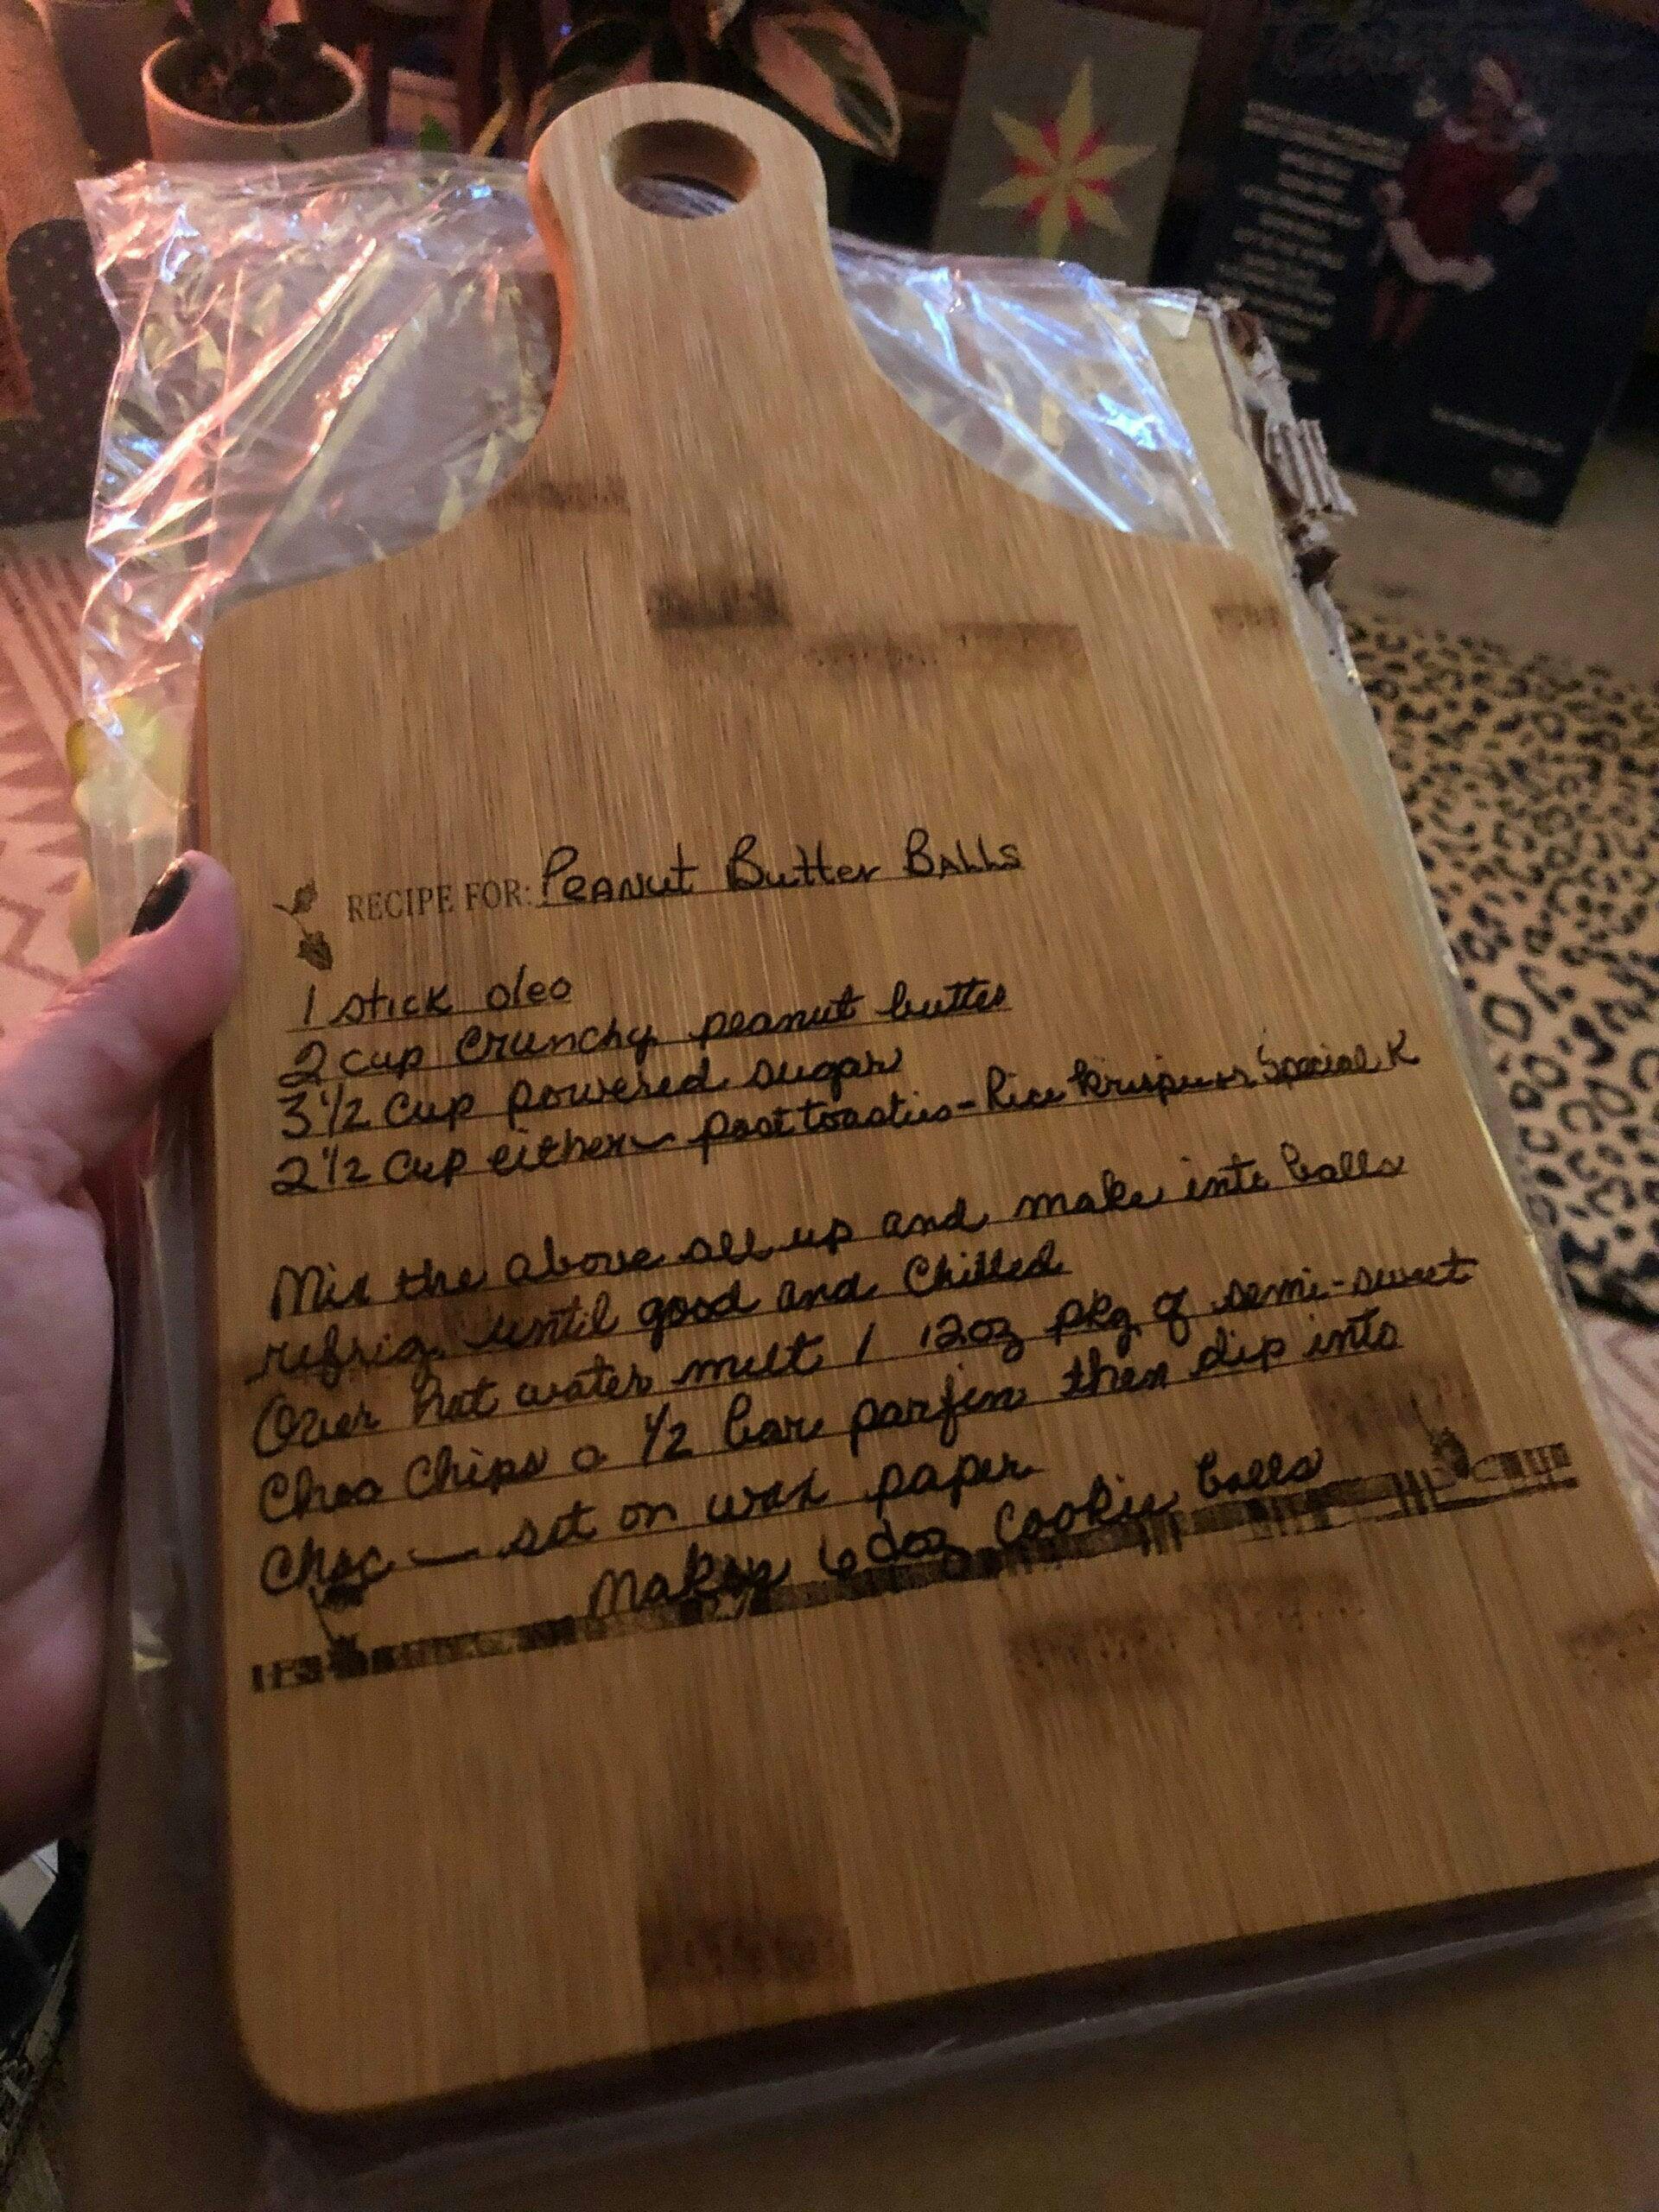 RECIPE FOR: Peanut Butter Balls
1 stick oleo
2 cup crunchy peanut butter
3 1/2 cup powered sugar
2 1/2 cup either — post toasties - Rice Krispies or Special K
Mix the above all up and make into balls
refrig. until good and chilled
Over hot water melt 1 12oz pkg of semi-sweet
Choc Chips o 1/2 bar parfin then dip into
Choc — set on wax paper
Makes 6 doz cookie balls